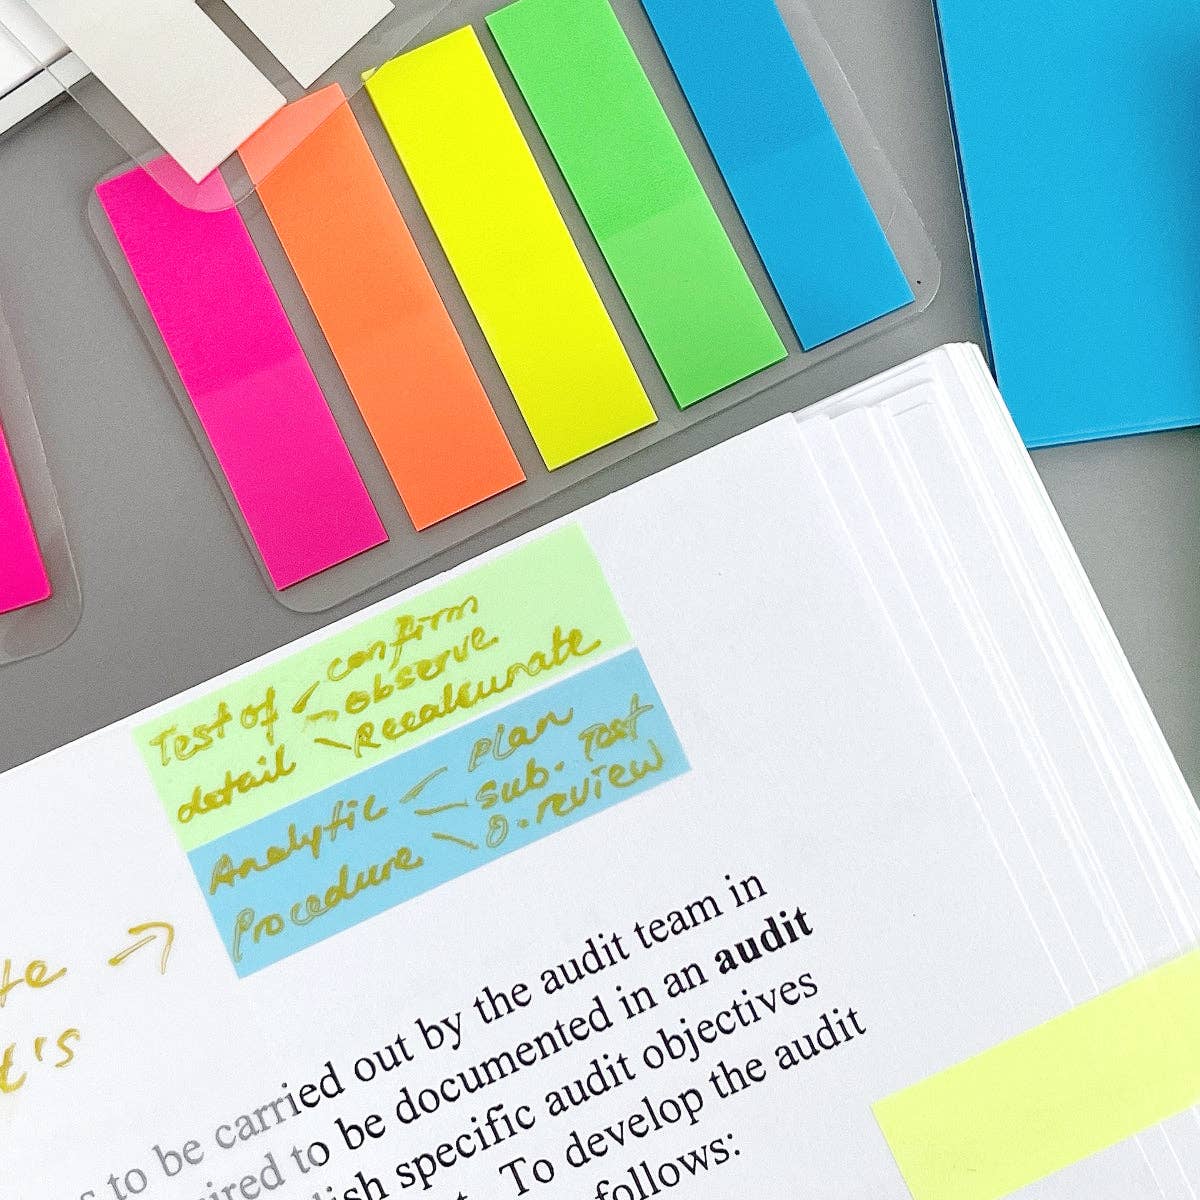 Test of - confirm
- observe
detail - Recalcunate
Analytic - Plan
- sub. Test
Procedure - O. review
te →
t's
to be carried out by the audit team in
ired to be documented in an audit
ish specific audit objectives
To develop the audit
follows: